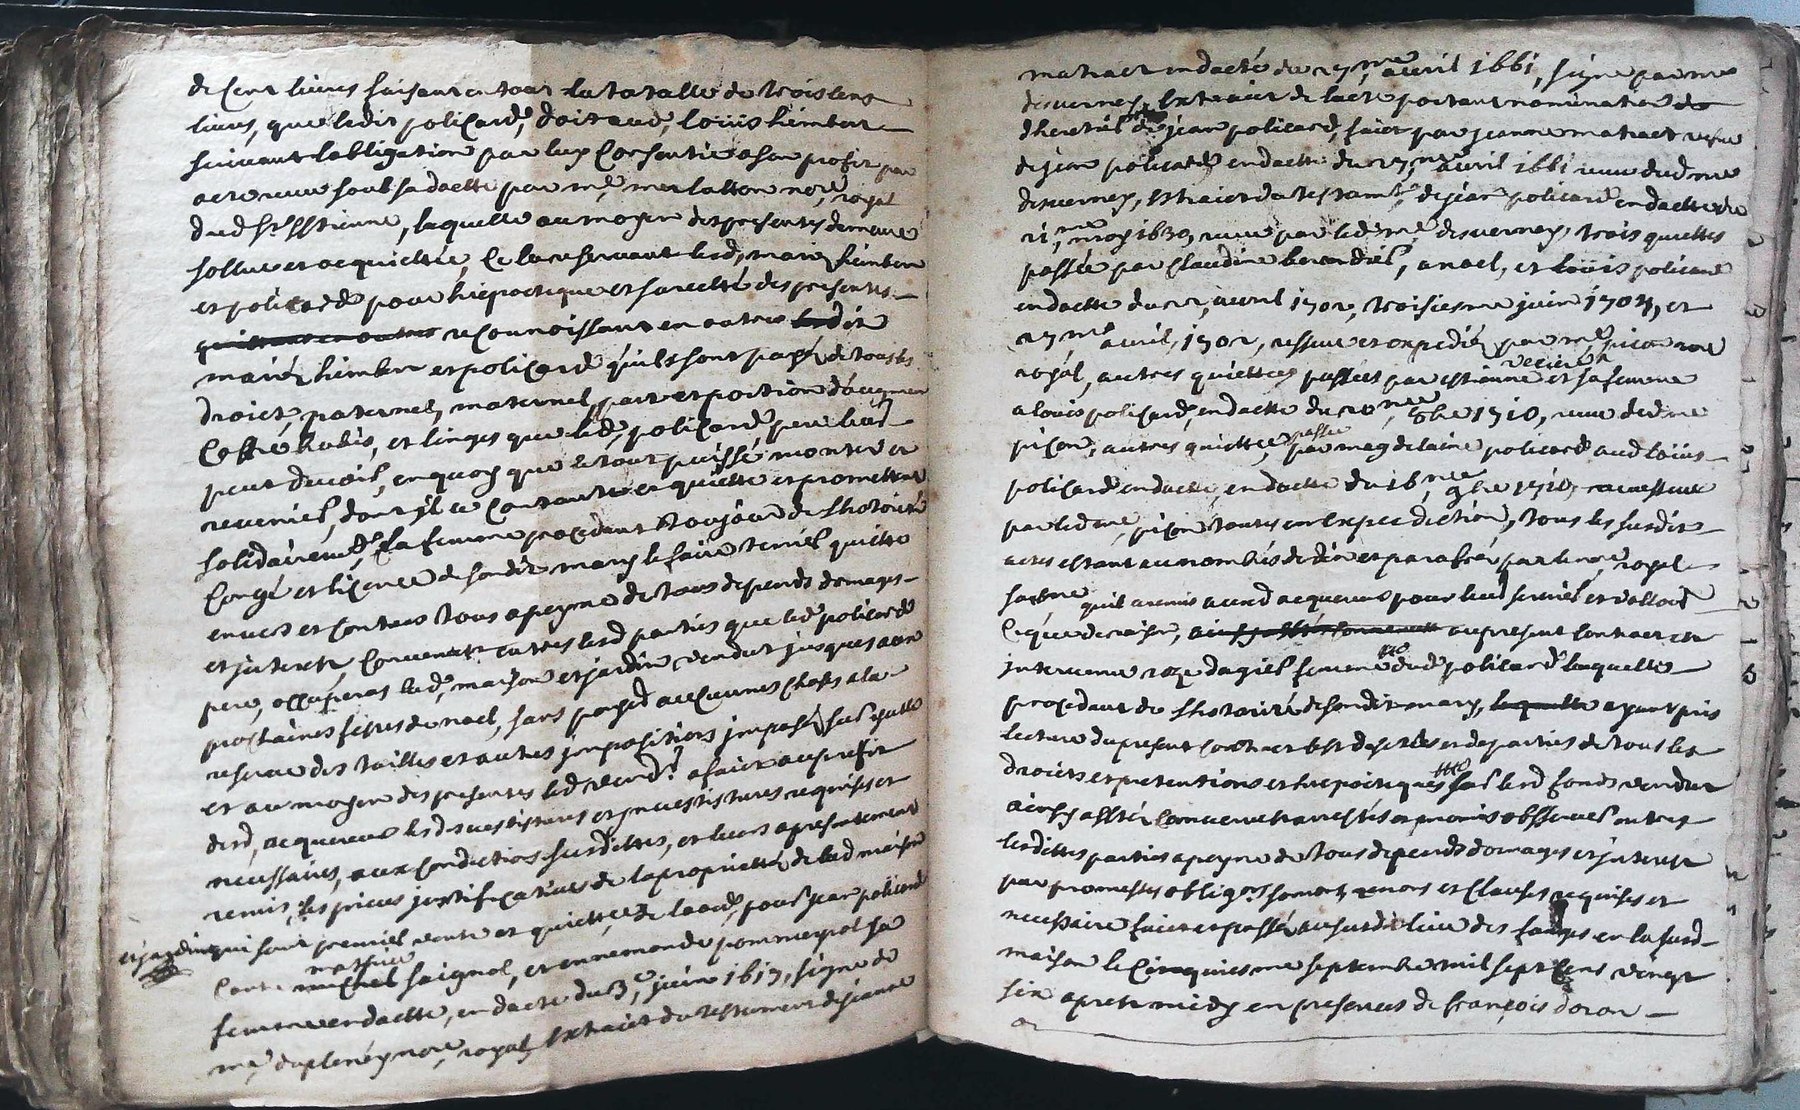 de cent livres faisant en tout la totalle de trois cens
livres, que ledit policard, doit aud, loüis himbert
suivant lobligation par luy consentie a son profit par
acte receu soub sa datte par me, mre royal
dud St Estienne, laquelle au moyen des presentes demeure
sollue et acquiettée, ce le reservant lesd, mariez himbert
et policard pour hiepoctique et sureté des presentes
quittant en outres reconnoissant en outres lesdit
mariez himbert et policard qu'ils sont payé de tous les
droict, paternel, maternel, part et portion d'augment
coffre habis, et linges que led, policard, pere leur
peut devoir, en quoy que le tout puisse monter et
revenir, dont il se contante et quiette et promettent
solidairemt, la femme procedant toujour de lhotorité
congé et licence de sondit mary le faire tenir quitte
envers et contres tous a peyne de tous depends domages
et jnterets, convenu entres lesd parties que led policard
pere, occuperas lad, maison et jardin vendut jusques aux
prochaines festes de noel, sans payer aucunes choses a la
reserve des tailles et autres jmpositions jmposé sur jcelle
et au moyen des presentes led vend.r a faict au profit
desd, acquereur lesd devestitures et jnvestitures requises et
necessaires, aux condictions susdittes, et leurs a presentement
remis, les pieces justificatives de la proprietté de lad maison
et jardin qui sont premier vente et quiettée de lad, pour jean policard
contre michel mathieu saignol, et ennemonde pommeyrol sa
femme en datte, en datte du 3,e juin 1617, signé de
me, duplenéy nore, royal, Extraict du testament de jeanne
matract en datté du 27,me avril 1661, signe par me
desverney, Extraict de lacte portant nomination de
dheretier de jean policard, faict par jeanne matract vefve
de jean policard en datte du 27,me avril 1661 receu dud me
desverney, Extraict du testamt, de jean policard en datte du
21,me may 1630, receu par led me, desverney, trois quiettes
passée par Claudine, anael, et loüis policard
en datte du avril 1702, troisiesme juin 1704, et
27me avril, 1702, resseue et expedié par me, picon nore
royal, autres quiettée passée par estienne et sa femme
a louis policard, en datte du 20,me 8bre 1710, receu dud me
picon, autres quiettée passée par magdelaine policard aud loüis
policard en datte, en datte du 16,me 9bre 1710, ressue
par led me, picon toutes en Expediction, tous les susdits
actes estant au nombre de dix et parafré par le nore, royal
sousne qu'il a remis auxd acquereur pour leur servir et valloir
ce que de raison, au present contract est
intervenue dagier femme dud policard laquelle
procedant de lhotorité de sondit mary, laquelle ayant pris
lecture du present contract sest desistés et departies de tous les
droicts et pretentions et hiepoctiques sur lesd fonds vendut
ainsy a esté convenu arrestés et promis observer entres
lesdittes parties a peyne de tous depends domages et jnterets
par promesses obligons serment, renons et clauses requises et
necessaire faict et passé au susdit lieu des farges en la susd
maison le cinquiesme septembre mil sept cens vingt
six apres midy en presences de françois doron